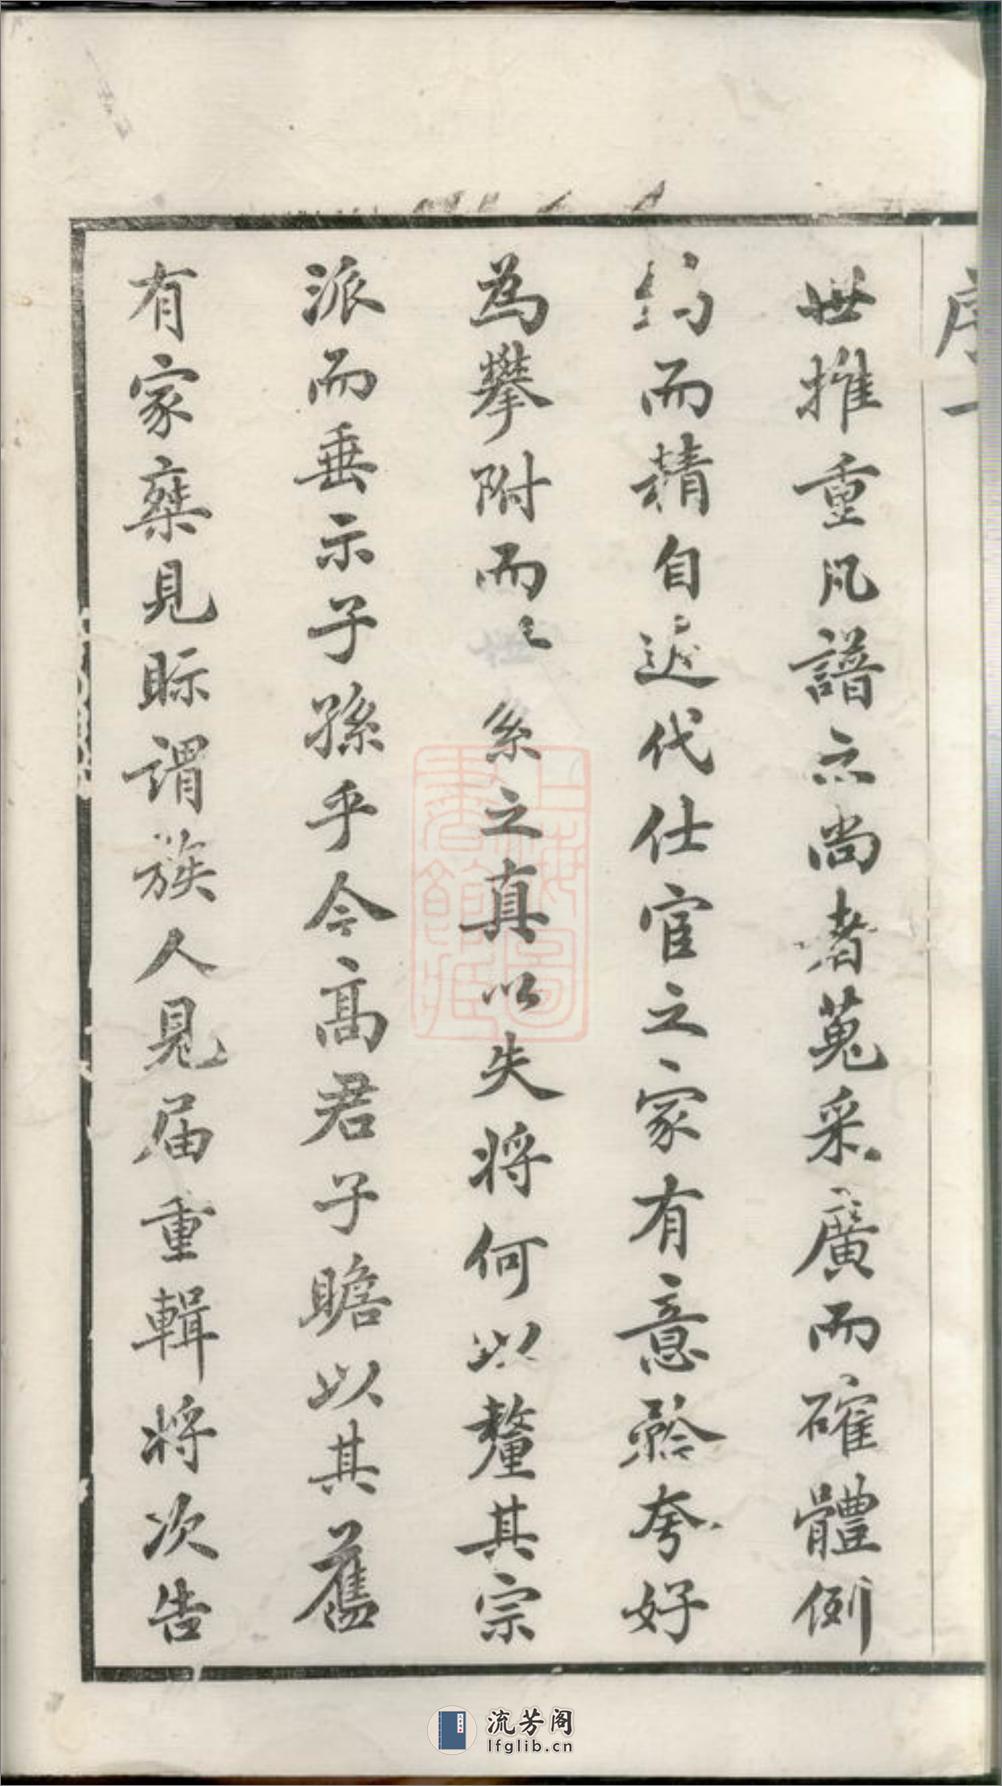 序一
世推重凡譜亦尚者蒐采廣而確體例
約而精自近代仕宦之家有意矜夸好
為攀附而世系之真以失將何以釐其宗
派而垂示子孫乎今高君子瞻以其舊
有家乘見眎謂族人見屆重輯將次告
上海圖書館藏
流芳阁
lfglib.cn